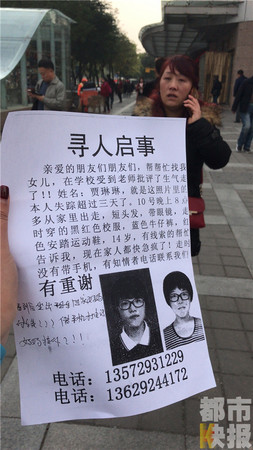 寻人启事
亲爱的朋友们朋友们，帮帮忙找我
女儿，在学校受到老师批评了生气走
了!! 姓名：贾琳琳，就是这照片里的
本人失踪超过三天了，10号晚上8点
多从家里出走，短头发，带眼镜，走
时穿的黑红色校服，蓝色牛仔裤，红
色安踏运动鞋，14岁，有线索的帮忙
告诉我，现在家人都快急疯了！走时
没有带手机，有知情者电话联系我们
有重谢
电话：13572931229
电话：13629244172
都市
快报